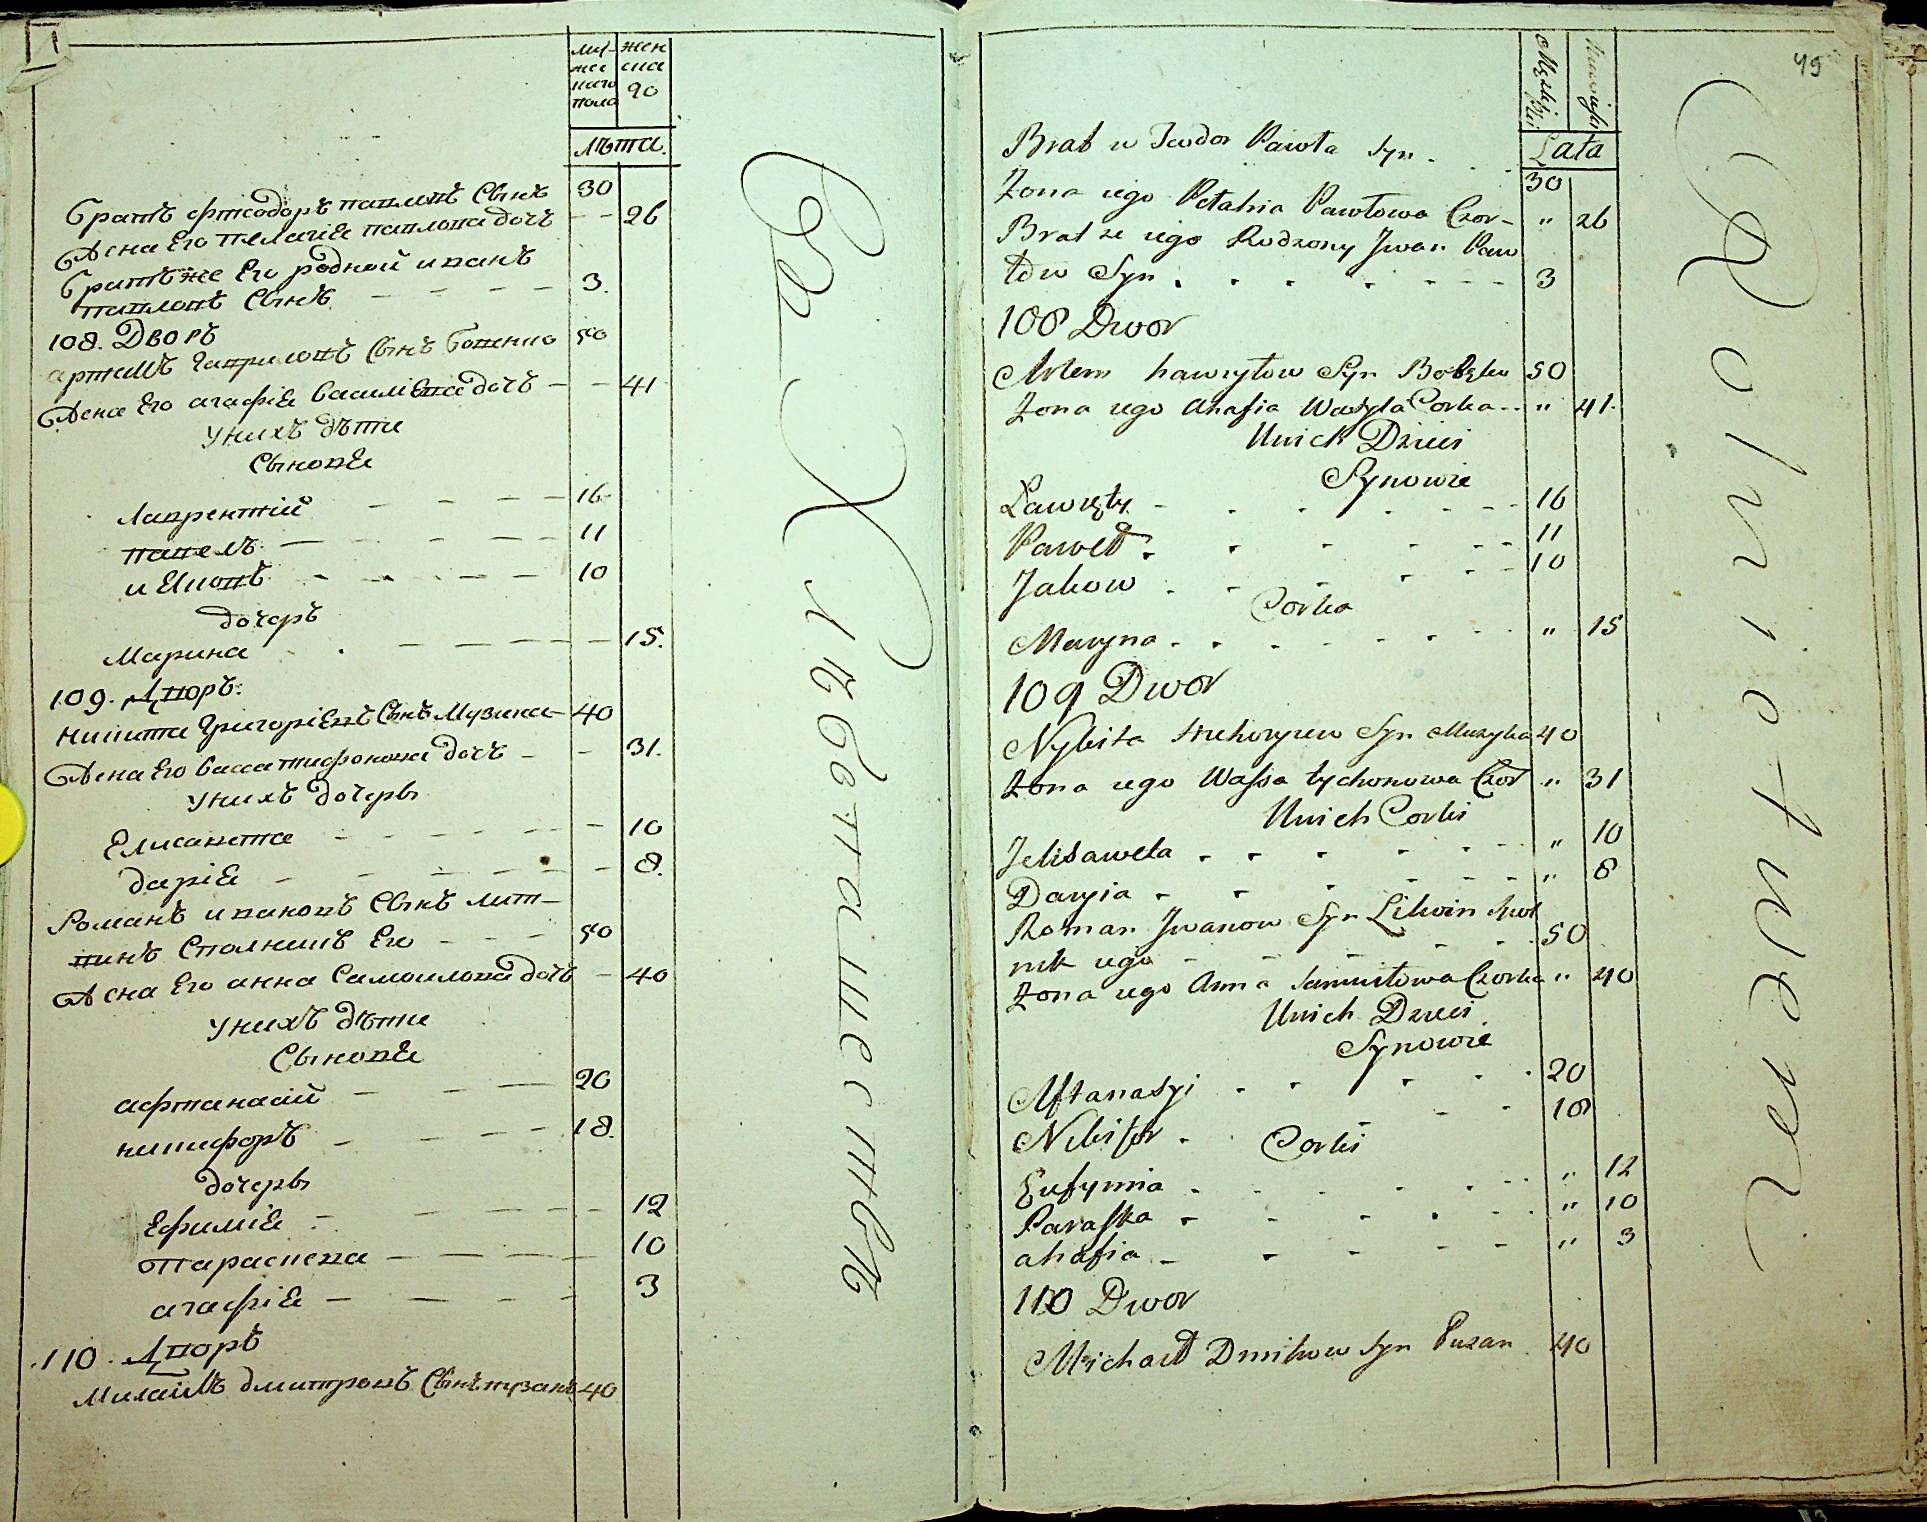 1
му- жен
жес ска
каго го
пола
Лѣта.
Братъ фтеодоръ павловъ Сынъ 30
Жена Его пелагіе павлова дочь - - 26
Братъ же Его родной иванъ
павловъ Сынъ - - - - 3.
108. Дворъ
артемъ Гавриловъ Сынъ 50
Жена Его агафіе василіева дочь - - 41
Унихъ дѣти
Сыновя
Лаврентий - - - - 16
павелъ - - - - 11
и Яковъ - - - - 10
дочеръ
Марина - - - - 15.
109. Дворъ.
никита Григоріевъ Сынъ Музика 40
Жена Его васса тифонова дочь - - 31.
Унихъ дочеры
Елисавета - - - - 10
даріе - - - - 8.
Романъ ивановъ Сынъ лит-
винъ Сполникъ Его - - - 50
Жена Его анна Самоилова дочь - 40
Унихъ дѣти
Сыновя
афтанасий - - - 20
никифоръ - - - 18.
дочеры
Ефиміе - - - - 12
параскева - - - - 10
агафіе - - - - 3
110. Дворъ
Михаилъ дмитровъ Сынъ пузанъ 40
Св Хветашевъ
49
Męzkij Płci
Lata
Brat w Teodor Pawła Syn. 30
Żona iego Pełahia Pawłowa Cor- " 26
Brat ze iego Rodzony Jwan Paw
łów Syn. - - - - 3
108 Dwor
Artem hawryłow Syn 50
Żona iego Ahafia Wasyla Corka - - " 41.
Unich Dzieci
Synowie
Ławręty - - - - 16
Paweł - - - - 11
Jakow - - - - 10
Corka
Maryna - - - - " 15
109 Dwor
Nykita hrehoryew Syn Muzyka 40
Żona iego Wassa tychonowa Cor " 31
Unich Corki
Jelisaweta - - - - " 10
Daryia - - - - " 8
Roman Jwanow Syn Litwin Spol
nik iego - - - - 50
Żona iego Anna Samuiłowa Corka " 40
Unich Dzieci
Synowie
Aftanasyi - - - - 20
Nikifor - - - 18
Corki
Eufymia - - - - " 12
Paraska - - - - " 10
ahafia - - - - " 3
110 Dwor
Michaił Dmitrow Syn Puzan 40